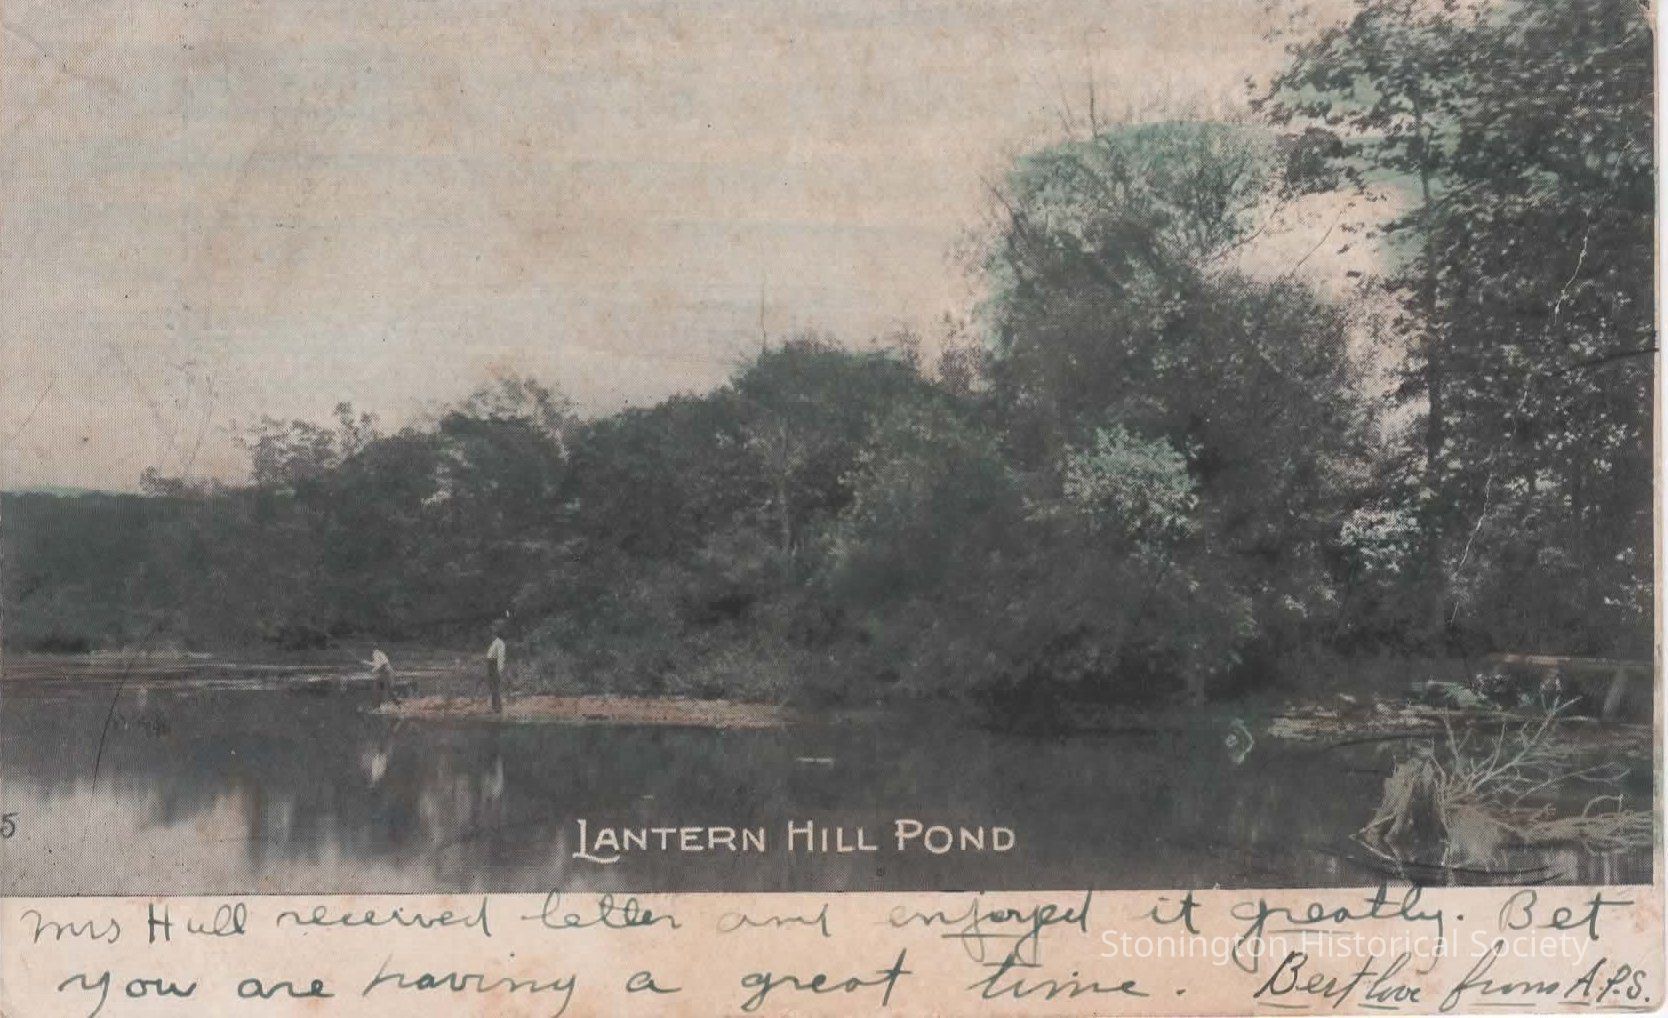 5
LANTERN HILL POND
Mrs Hull received letter and enjoyed it greatly. Bet
Stonington Historical Society
you are having a great time. Best love from A.P.S.